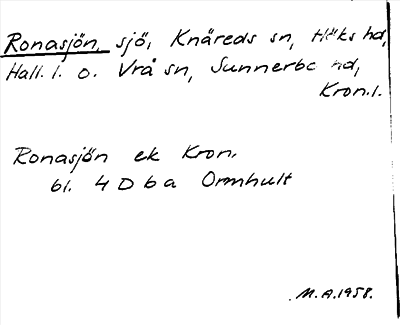 Ronasjön, sjö, Knäreds sn, Höks hd,
Hall. l. o. Vrå sn, Sunnerbo hd,
Kron. l.
Ronasjön ek Kron.
bl. 4 D b a Ormhult
M. A. 1958.